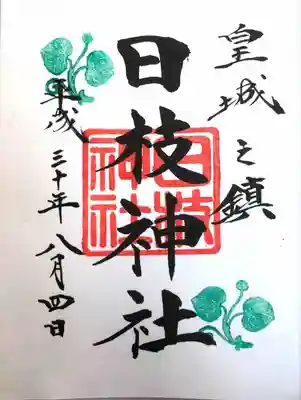 皇城之鎮
日枝神社
平成三十年八月四日
日枝神社